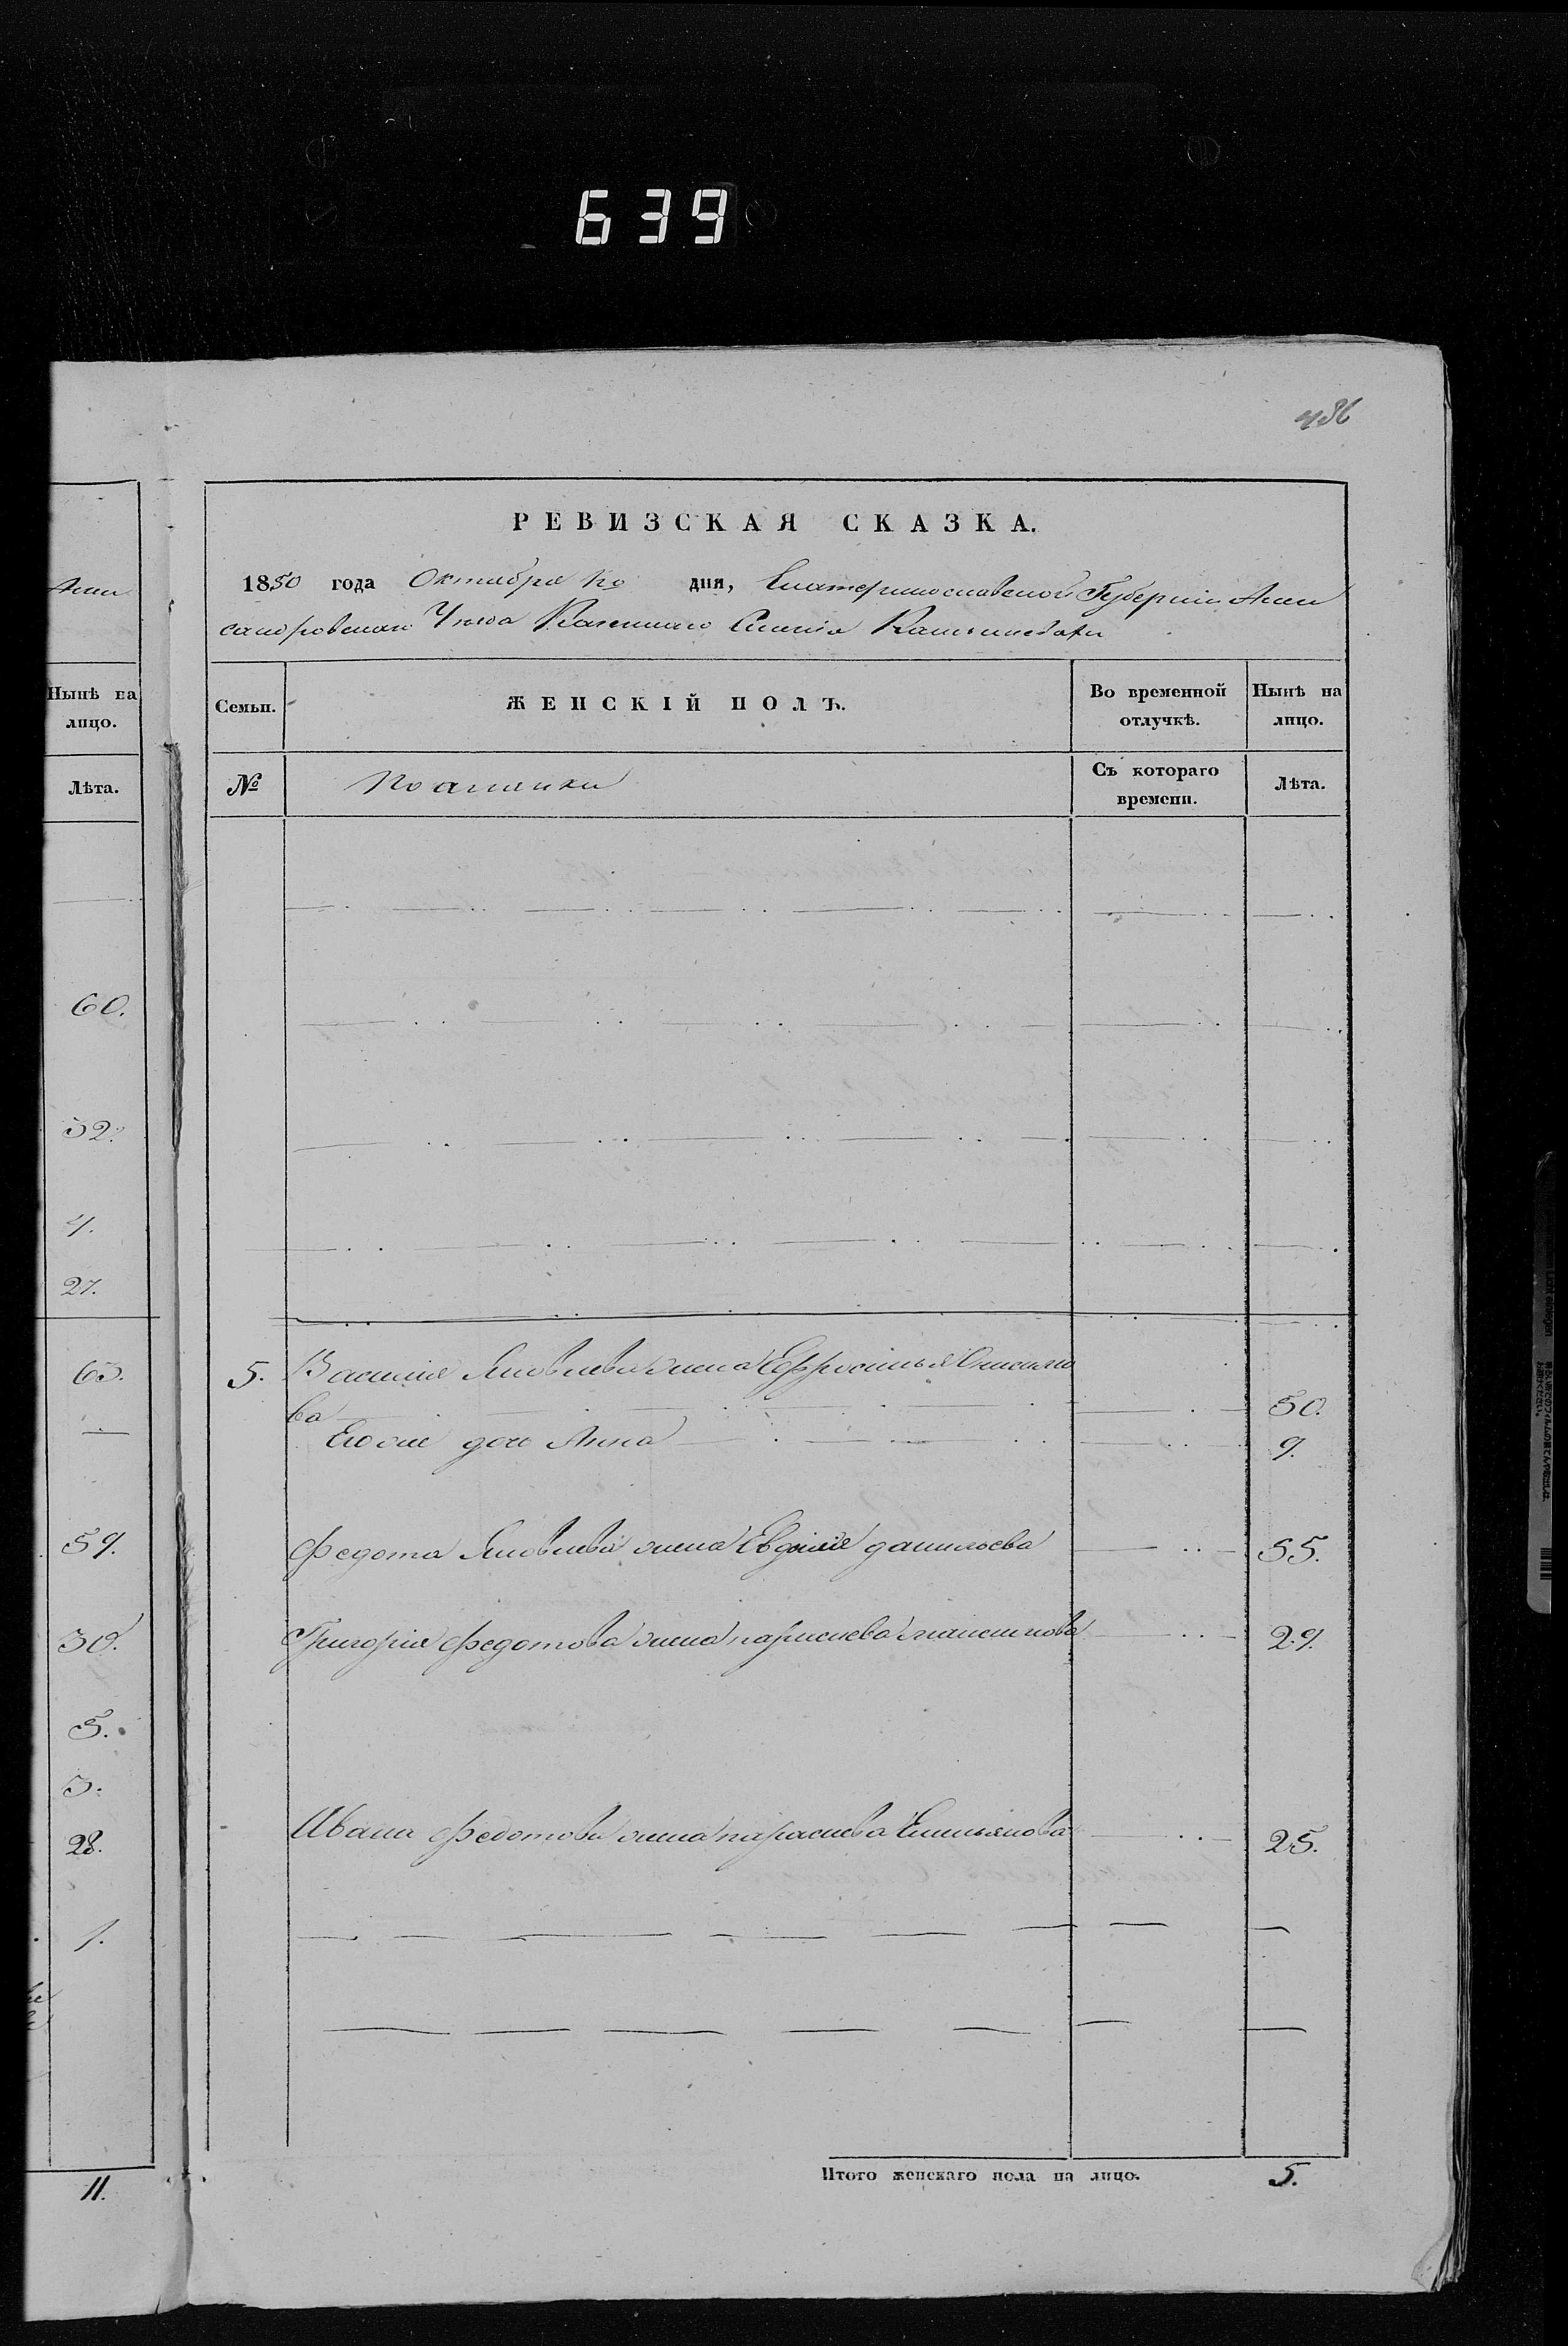 639
436
РЕВИЗСКАЯ СКАЗКА.
1850 года Октября дня, Екатеринославской Губернии Алек
сандровскаго Уезда Казеннаго Селенія
Нынѣ на
лицо.
Лѣта.
60.
32.
4.
27.
65.
59.
30.
5.
3.
28.
1.
11.
Семьи.
ЖЕНСКІЙ ПОЛЪ.
Во временной
отлучкѣ.
Нынѣ на
лицо.
№
Съ котораго
времени.
Лѣта.
5. Василія Яковлева жена Ефросинья
ва 50.
Его же дочь Анна 9.
Федота Яковлева жена Евдокія данилова 55.
Григорія Федотова жена параскева 29.
Ивана Федотова жена параскева Емельянова 25.
Итого женскаго пола на лицо. 5.